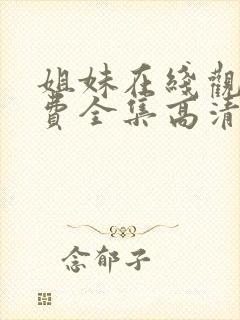 姐妹在綫觀
費全集高清
念郁子